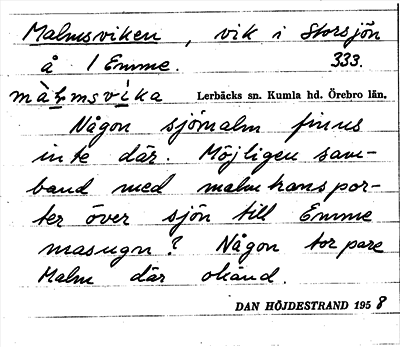 Malmsviken, vik i Storsjön
å 1 Emme. 333.
màɫmsvìka Lerbäcks sn. Kumla hd. Örebro län.
Någon sjömalm finns
inte där. Möjligen sam-
band med malmtranspor-
ter över sjön till Emme
masugn? Någon torpare
Malm där okänd.
DAN HÖJDESTRAND 1958